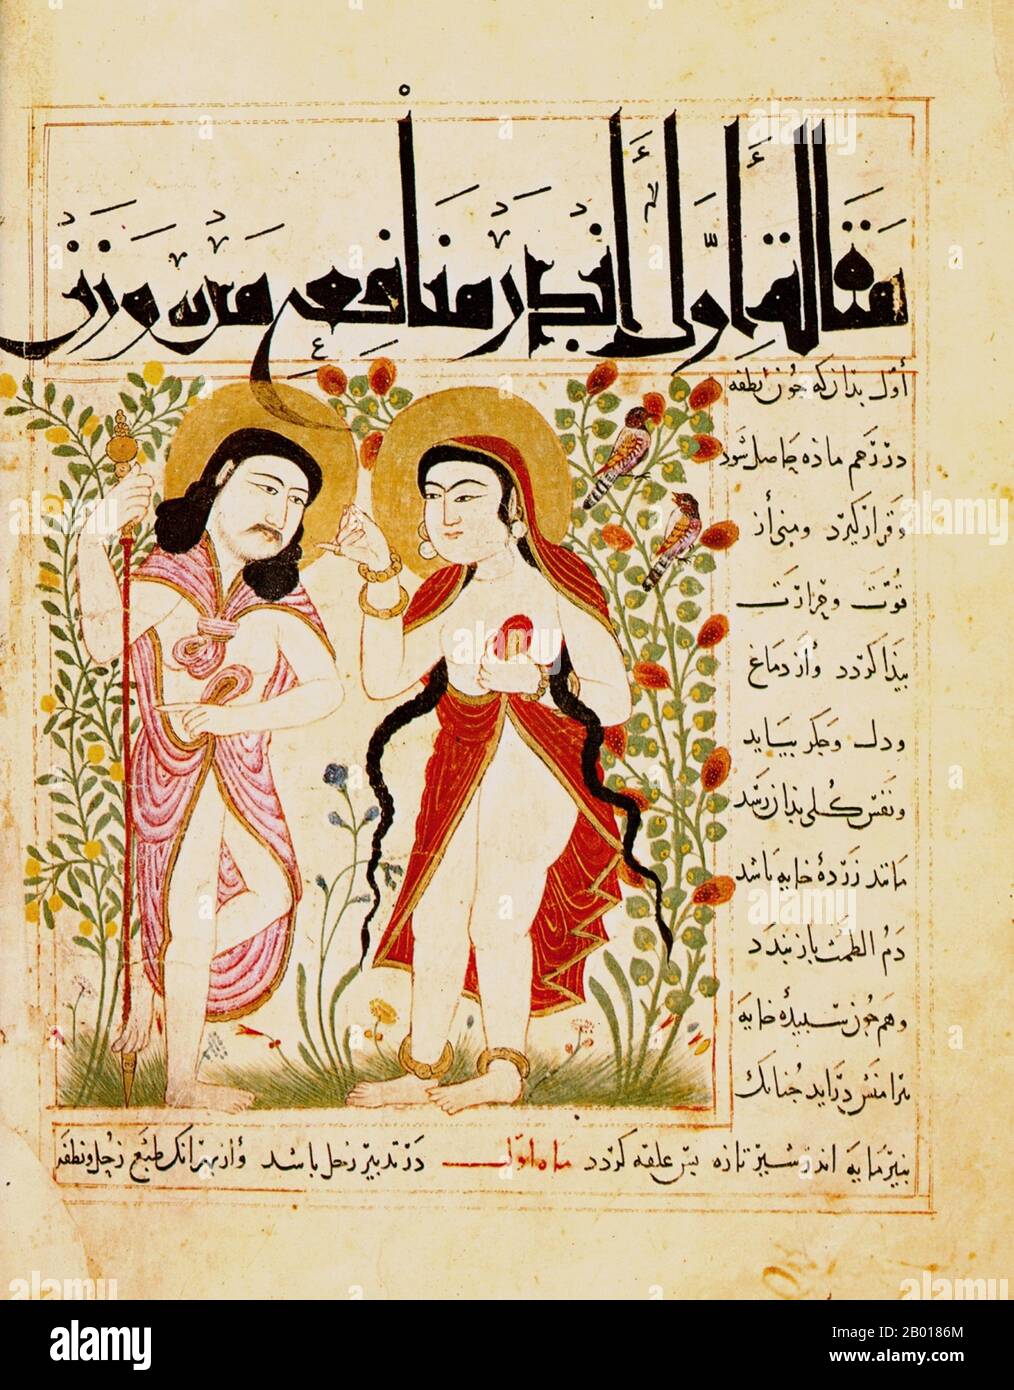 مقالة أوّل أندر منافع مرد و زن
أوّل بدانكه چون نطفه
در رحم ماده حاصل شود
و قرار گيرد و منى از
قوّت و حرارت
پيدا گردد و از دماغ
و دل و جگر بيايد
و نفس كلى بدان رسد
مانند زردهٔ خايه باشد
دم الطمث باز بندد
و هم چون سپيدهٔ خايه
پيرامنش درآيد چنانك
پنيرمايه اندر شير تازه پس علقه گردد ماه اول در تدبير زحل باشد و از بهر انك طبع زحل و نطفه
alamy
Image ID: 2B0186M
www.alamy.com